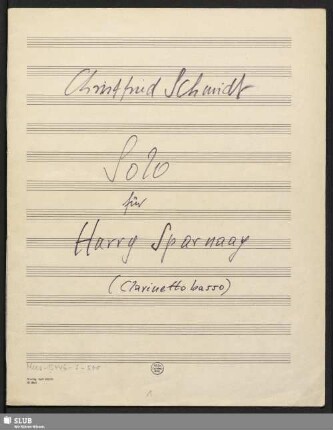 Christfried Schmidt
Solo
für
Harry Sparnaay
(Clarinetto basso)
SLUB